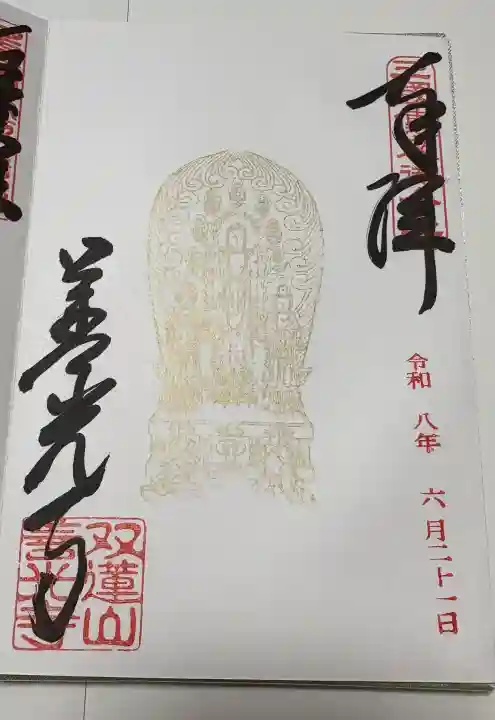 奉拝
令和 八年 六月二十一日
善光寺
双蓮山
善光寺